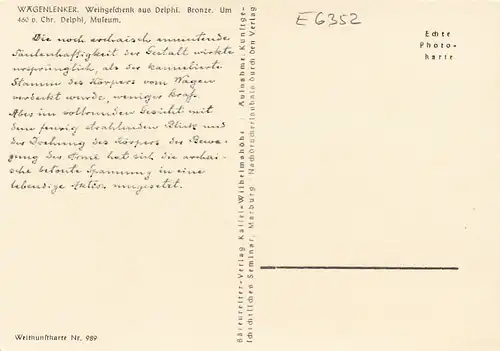 WAGENLENKER. Weihgeschenk aus Delphi. Bronze. Um
460 v. Chr. Delphi, Museum.
Die noch archaisch anmutende
Säulenhaftigkeit der Gestalt wirkte
ursprünglich, als der kannelierte
Stamm des Körpers vom Wagen
verdeckt wurde, weniger krass.
Aber im vollrunden Gesicht mit
dem feurig strahlenden Blick und
der Drehung des Körpers der Bewe-
gung des Arms hat sich die archai-
sche betonte Spannung in eine
lebendige Aktion umgesetzt.
Weltkunstkarte Nr. 989
Bärenreiter-Verlag Kassel-Wilhelmshöhe / Aufnahme: Kunstge-
schichtliches Seminar, Marburg / Nachdruckerlaubnis durch den Verlag
E 6352
Echte
Photo-
karte